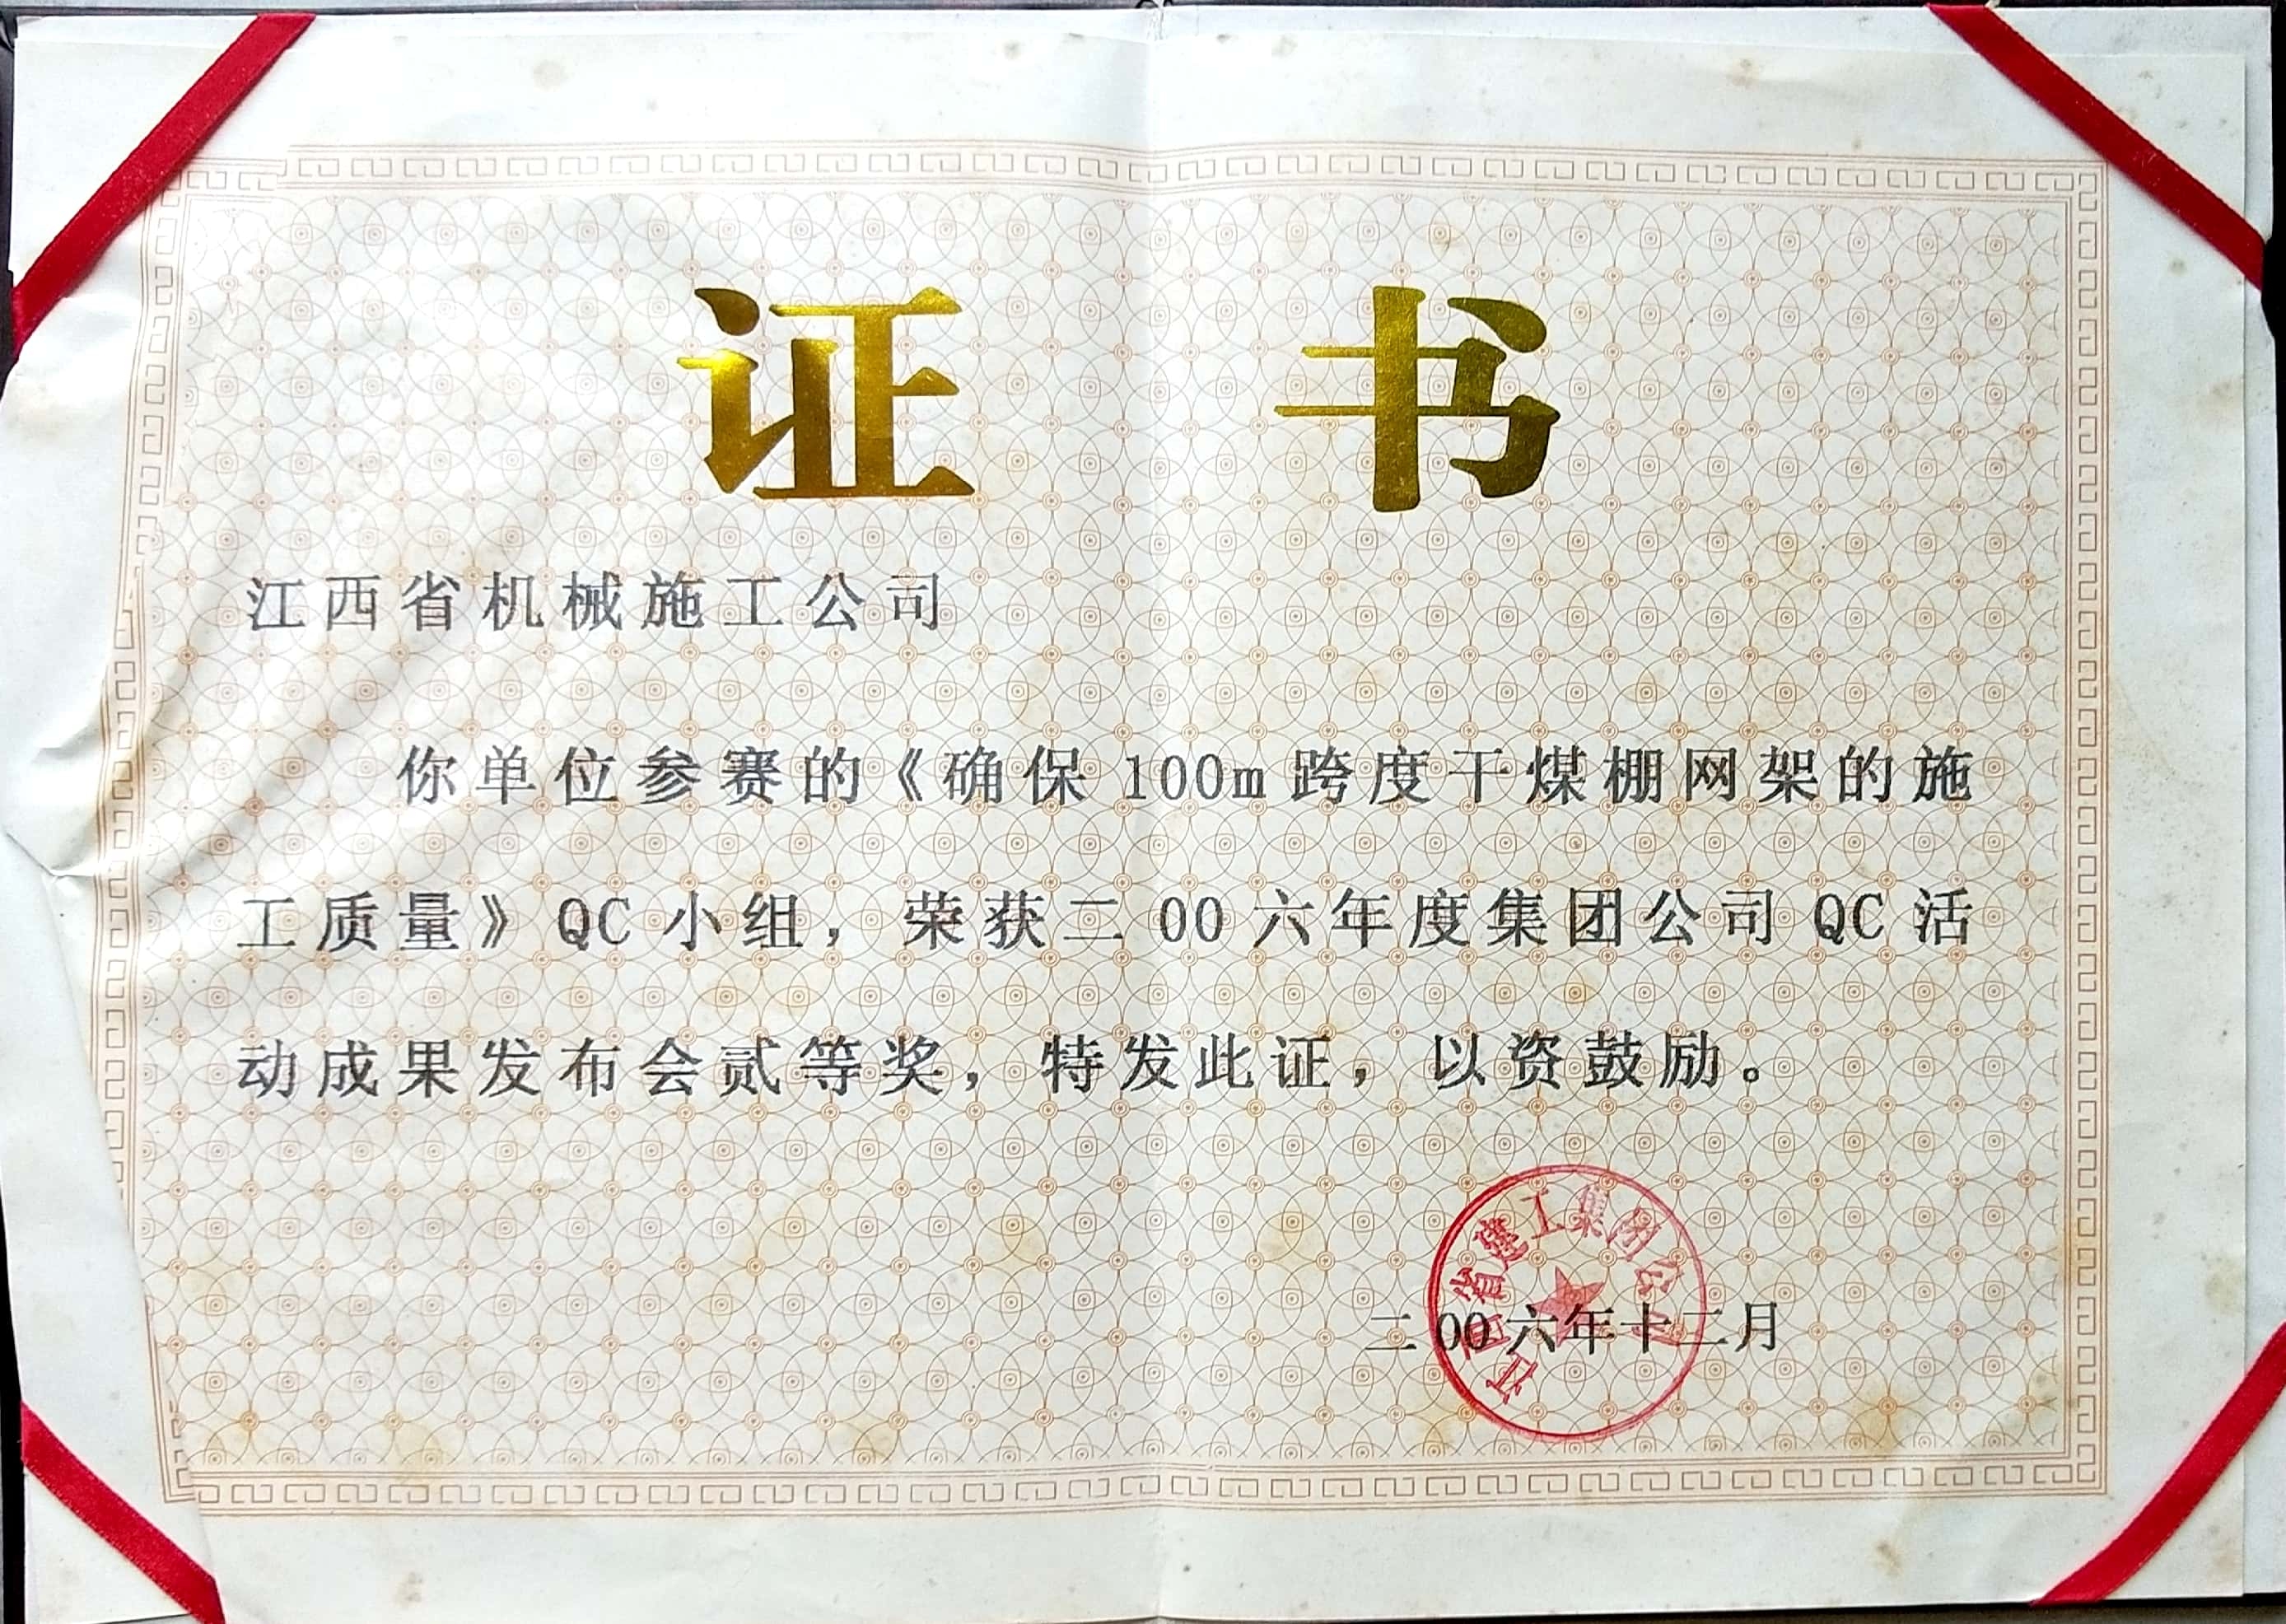 证书
江西省机械施工公司
你单位参赛的《确保100m跨度干煤棚网架的施
工质量》QC小组，荣获二00六年度集团公司QC活
动成果发布会贰等奖，特发此证，以资鼓励。
江西省建工集团公司
二00六年十二月